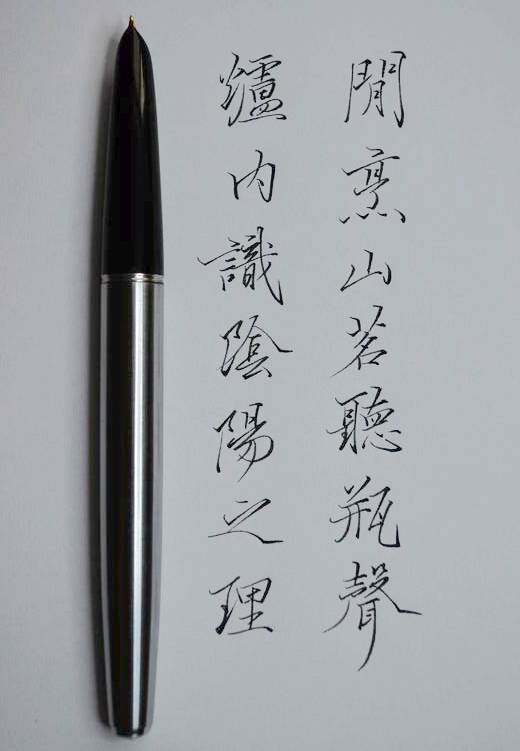 閒烹山茗聽瓶聲
爐內識陰陽之理